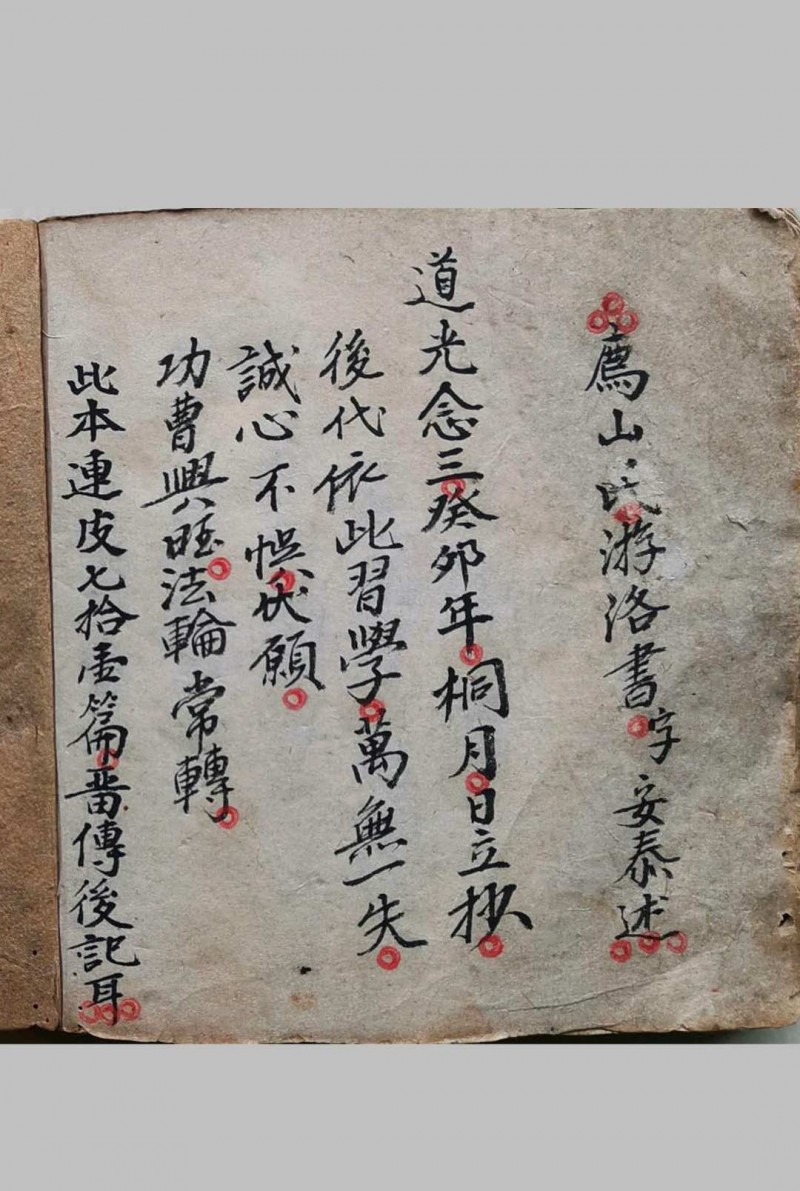 廌山氏游洛書字安泰述
道光念三癸卯年桐月日立抄
後代依此習學萬無一失
誠心不悞伏願
功曹興旺法輪常轉
此本連皮七拾壹篇畱傳後記耳